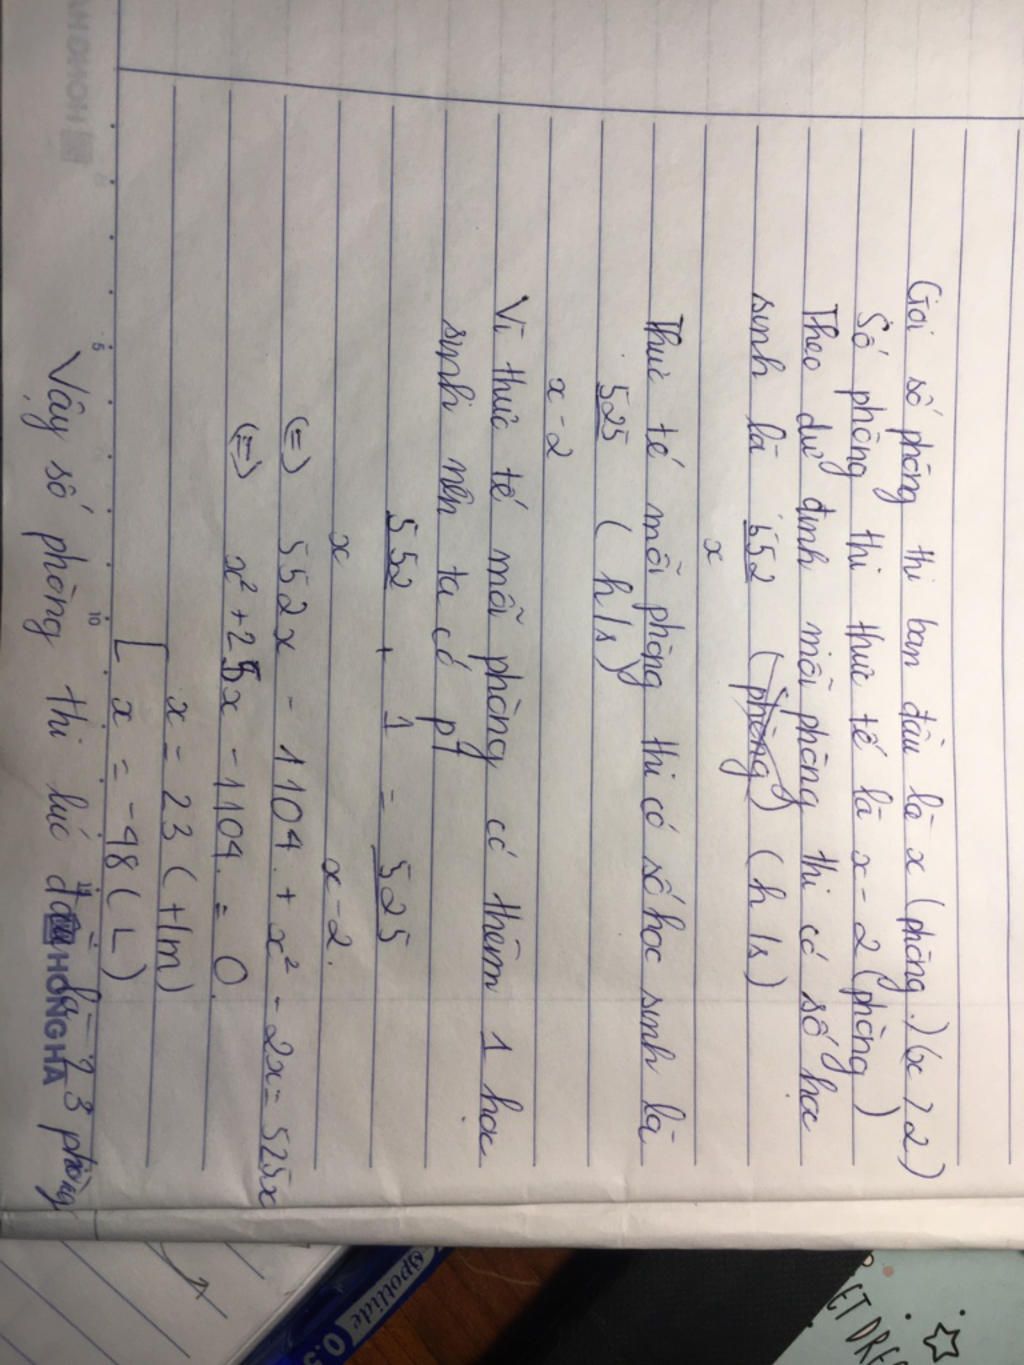 Gọi số phòng thi ban đầu là x (phòng.) (x > 2)
Số phòng thi thực tế là x - 2 (phòng)
Theo dự định mỗi phòng thi có số học
sinh là 552 (phòng) (h/s)
x
Thực tế mỗi phòng thi có số học sinh là
525 (h/s)
x - 2
Vì thực tế mỗi phòng có thêm 1 học
sinh nên ta có pt
552 + 1 = 525
x x - 2.
(=) 552x - 1104 + x² - 2x = 525x
(=) x² + 25x - 1104 = 0.
x = 23 (t/m)
x = -48 (L)
Vậy số phòng thi lúc đầu là 23 phòng
5 10
HONG HA
spotlide 0.5
ET DRE